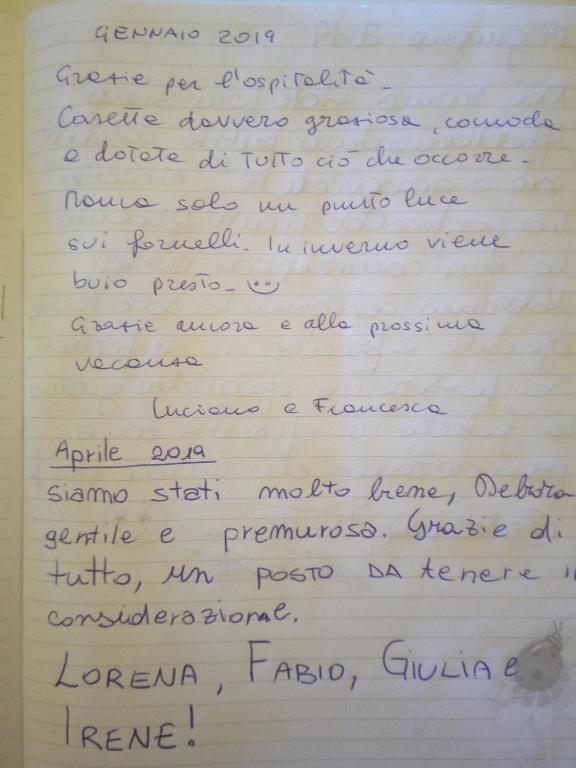 GENNAIO 2019
Grazie per l'ospitalità.
Casetta davvero graziosa, comoda
e dotata di tutto ciò che occorre.
Manca solo un punto luce
sui fornelli. In inverno viene
buio presto.
Grazie ancora e alla prossima
vacanza
Luciano e Francesca
Aprile 2019
siamo stati molto bene, Debora
gentile e premurosa. Grazie di
tutto, un POSTO DA tenere in
considerazione.
LORENA, FABIO, GIULIA e
IRENE!